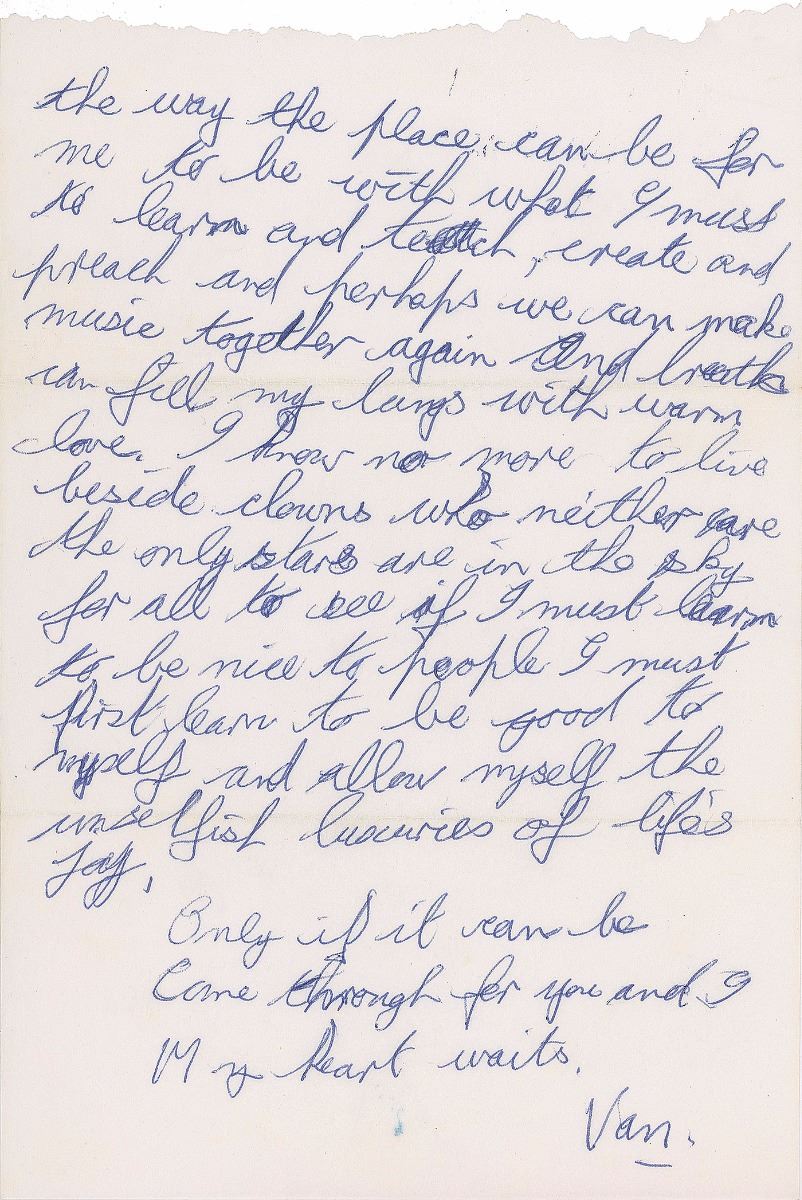 the way the place can be for
me to be with what I must
to learn and teach, create and
preach and perhaps we can make
music together again And breath
can fill my lungs with warm
love. I know no more to live
beside clowns who neither care
the only stars are in the sky
for all to see if I must learn
to be nice to people I must
first learn to be good to
myself and allow myself the
unselfish luxuries of life's
Joy,
Only if it can be
Come through for you and I
My heart waits.
Van.